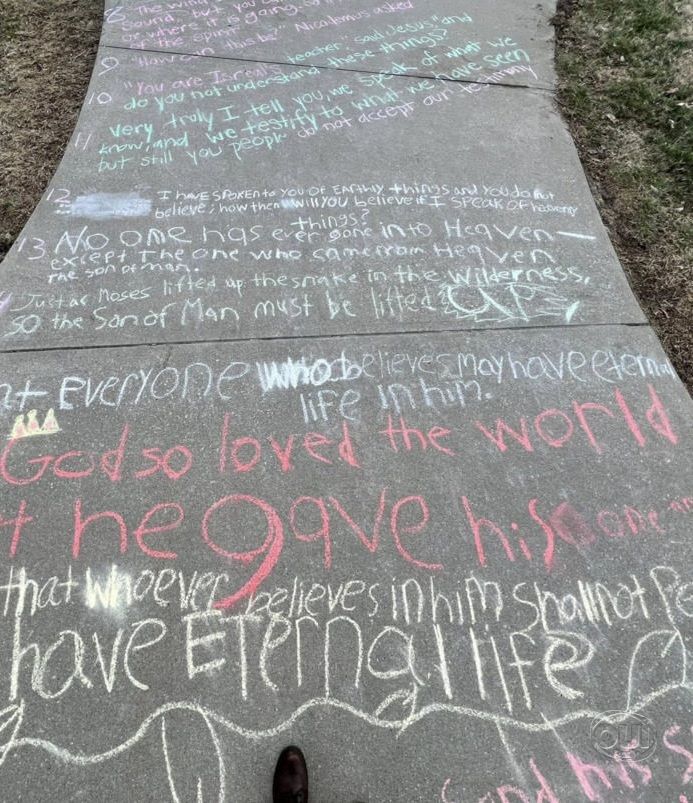 8 "The wind
sound, but you
or where it is going. So it is
of the spirit
9 "How can this be?" Nicodemus asked
10 "You are Israel's teacher," said Jesus "and
do you not understand these things?
11 very truly I tell you, we speak of what we
know, and we testify to what we have seen
but still you people do not accept our testimony
12 I HAVE SPOKEN to YOU OF EARthly things and YOU do not
believe; how then will YOU believe if I SPEAK OF heavenly
things?
13 No one has ever gone into Heaven—
except The one who came from Heaven
The son of man.
Just as Moses lifted up the snake in the wilderness,
so the Son of Man must be lifted UP,
Everyone who believes may have eternal
life in him.
God so loved the world
he gave his one
that whoever believes in him shall not Pe
have Eternal life
and his s
OU